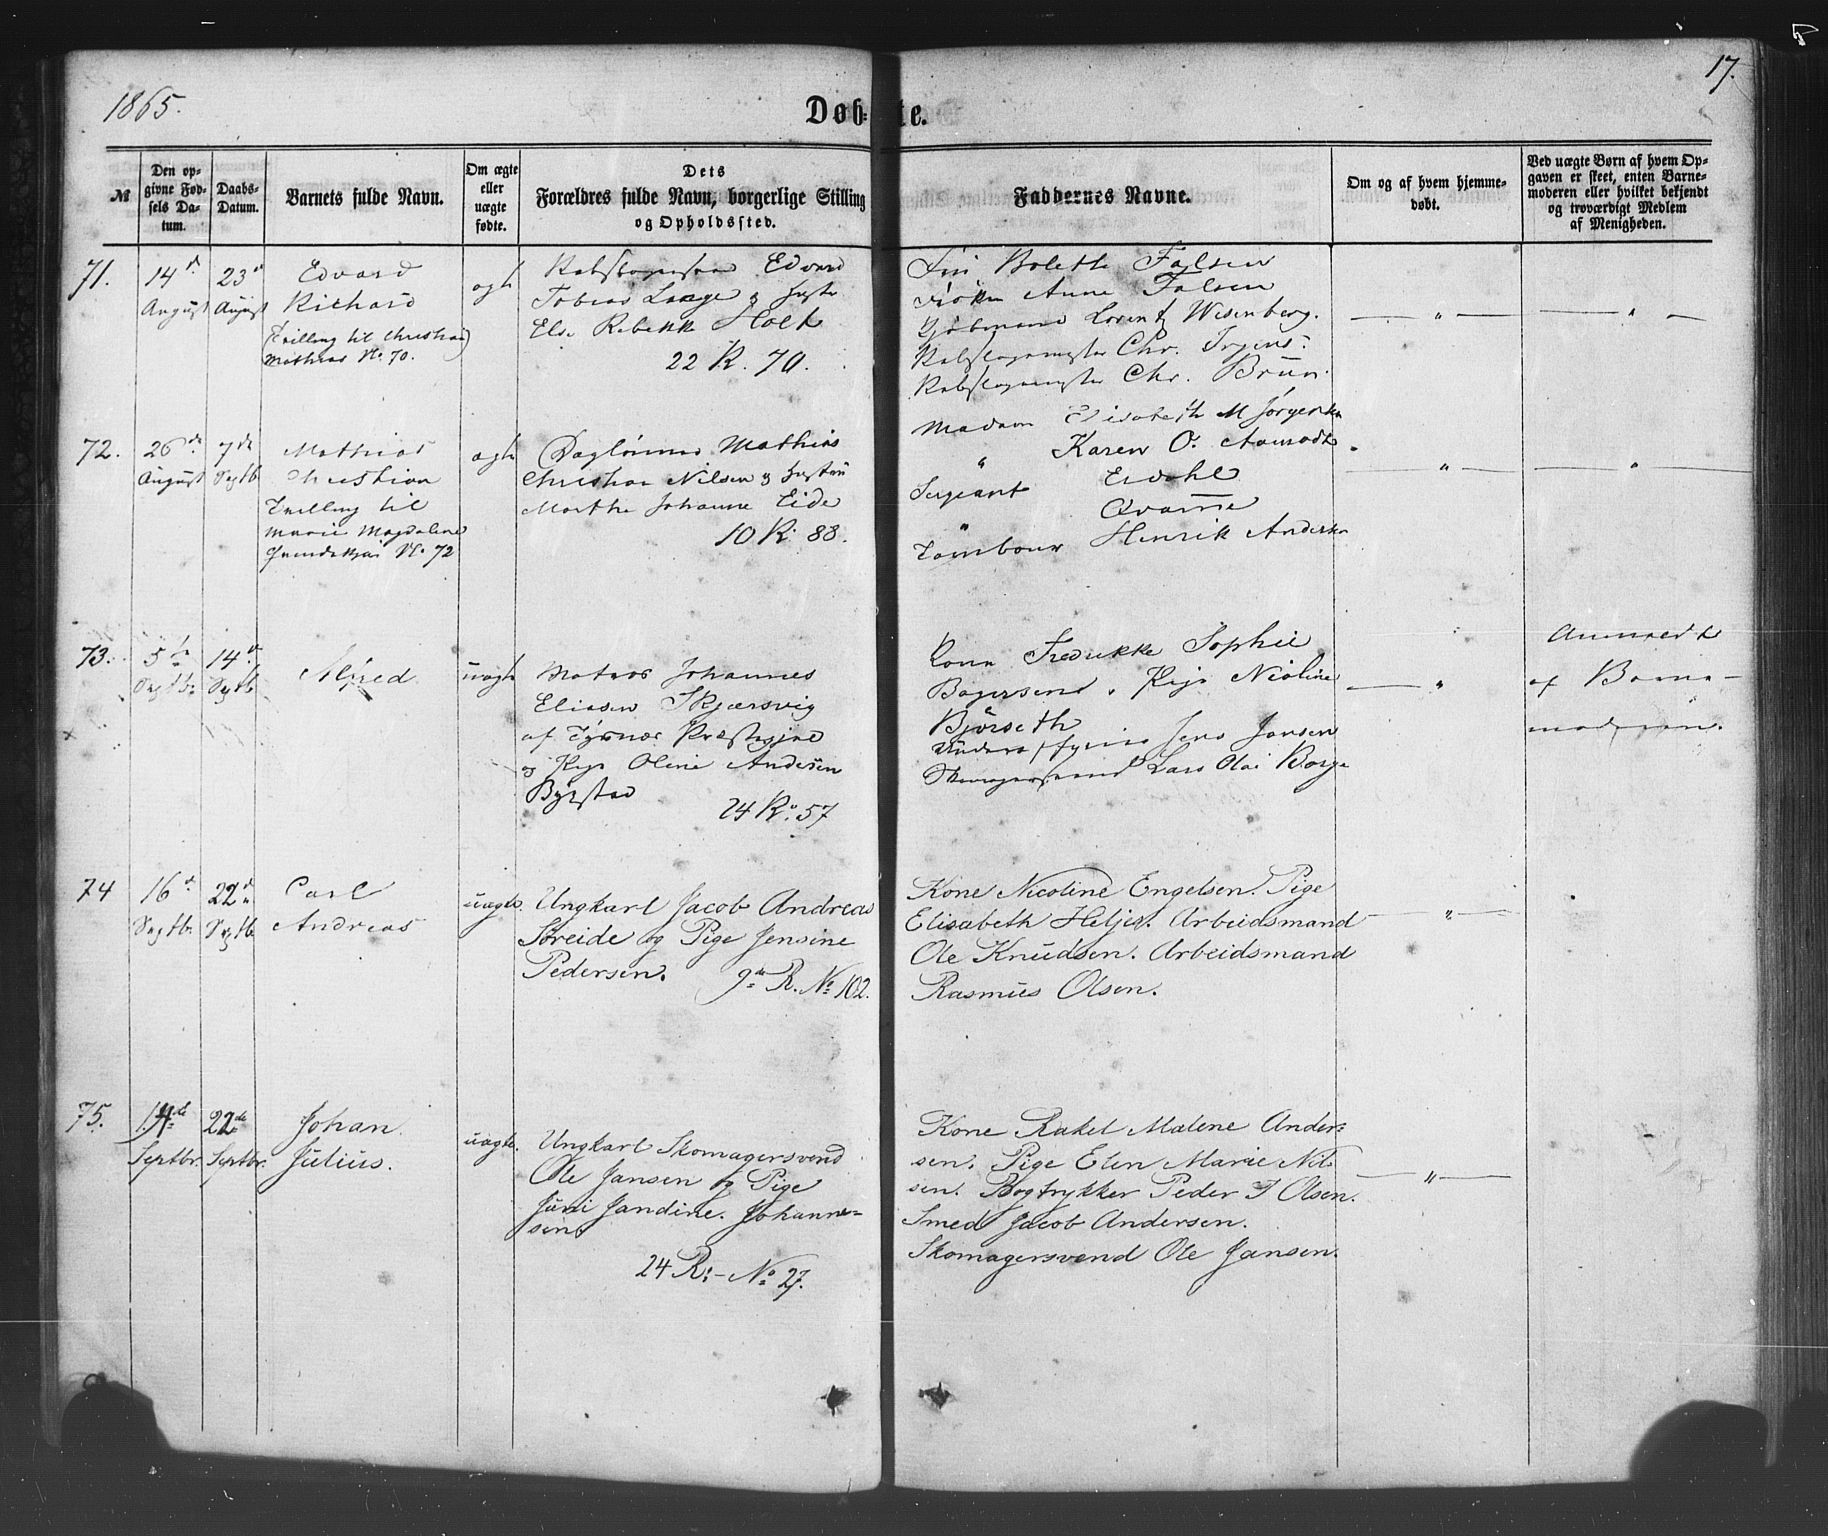 1865.
17.
Døbte.
№
Den opgivne Fødsels Datum.
Daabs-Datum.
Barnets fulde Navn.
Om ægte eller uægte fødte.
Dets Forældres fulde Navn, borgerlige Stilling og Opholdssted.
Faddernes Navne.
Om og af hvem hjemmedøbt.
Ved uægte Børn af hvem Opgaven er skeet, enten Barnemoderen eller hvilket bekjendt og troværdigt Medlem af Menigheden.
71.
14 August
23 August
Edvard
Richard
(Tvilling til Christian
Mathias No. 70.)
ægte
Edvard
Tobias Lange og Hustru
Else Rebekk Holt
22 R. 70.
Bolette Falsen
Frøken Anne Falsen
Lorentz Wesenberg.
Chr. Irgens.
Chr. Brun.
72.
26de August
7de Septb
Mathias
Christian
Tvilling til
Marie Magdalene
No. 72
ægte
Daglønner Mathias
Christian Nilsen og Hustru
Marthe Johanne Eide
10 R. 88.
Madam Elisabeth M Jørgensen
" Karen O. Aamodt
Sergeant Erdahl
" Qvamme
Tambour Henrik Andersen
73.
5te Septbr
14de Septb
Alfred
uægte
Matros Johannes
Eliasen Skjærsvig
af Tysnæs Præstegjeld
og Pige Oline Andersen
24 R. 57
Kone Fredrikke Sophie
Pige Nicoline
Bjørseth
Jens Jansen
Lars Olai Borge
Anmeldt
af Barne-
moderen.
74
16de Septbr.
22de Septb
Carl
Andreas
uægte.
Ungkarl Jacob Andreas
Søreide og Pige Jensine
Pedersen. 9de R. No 102.
Kone Nicoline Engelsen. Pige
Elisabeth Heljer. Arbeidsmand
Ole Knudsen. Arbeidsmand
Rasmus Olsen.
75.
14de Septbr.
22de Septbr.
Johan
Julius.
uægte.
Ungkarl Skomagersvend
Ole Jansen og Pige
Juni Jandine. Johanne-
sen
24 R. – No 27.
Kone Rakel Malene Ander-
sen. Pige Elen Marie Nil-
sen. Bogtrykker Peder J Olsen.
Smed Jacob Andersen.
Skomagersvend Ole Jansen.